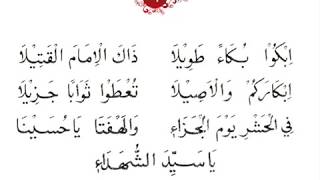 اِبْكُوْا بُكَاءً طَوِيْلَا ذَاكَ الْاِمَامَ الْقَتِيْلَا
اِبْكَارَكُمْ وَالْاَصِيْلَا تُعْطَوْا ثَوَابًا جَزِيْلَا
فِي الْحَشْرِ يَوْمَ الْجَزَاءِ وَالَهْفَتَا يَاحُسَيْنَا
يَا سَيِّدَ الشُّهَدَاءِ